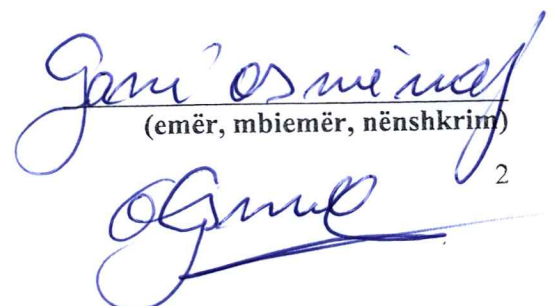 Gani Osmënaj
(emër, mbiemër, nënshkrim)
2